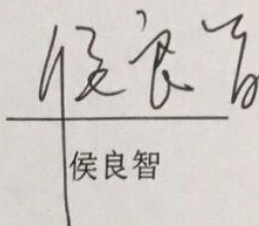 侯良
侯良智